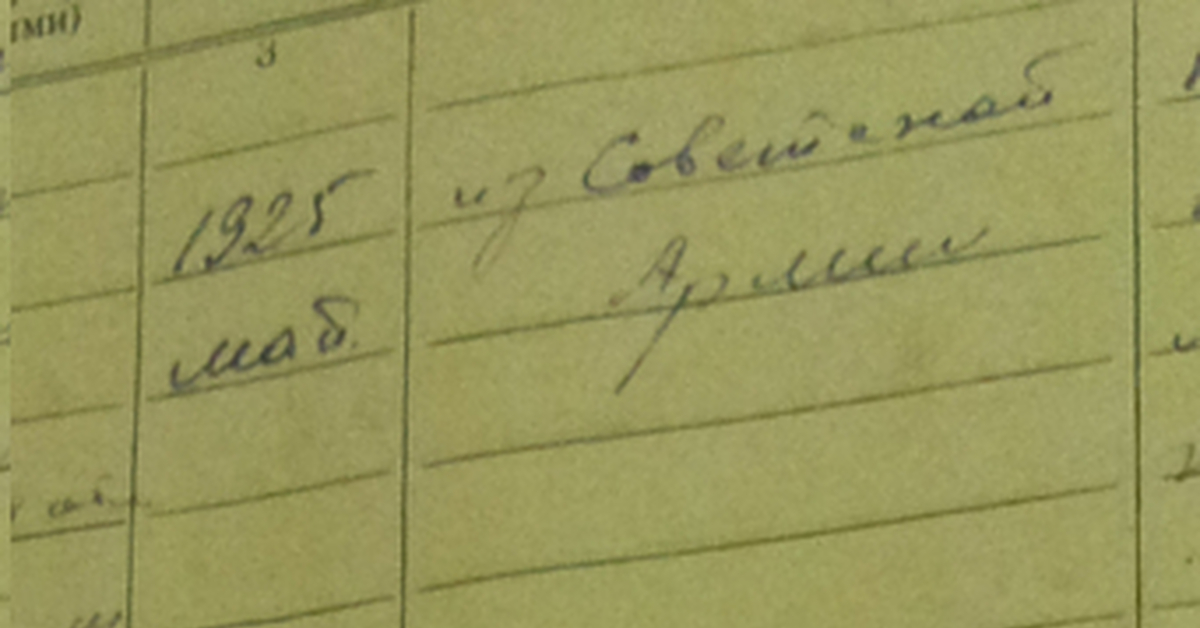 3
1925
май
из Советской
Армии